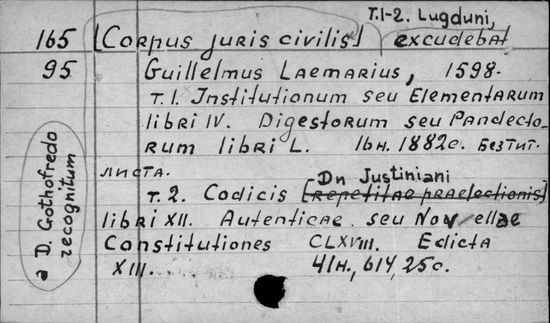 T.1-2. Lugduni,
165 [Corpus juris civilis] excudebat
95 Guillelmus Laemarius, 1598.
T.1. Institutionum seu Elementarum
libri IV. Digestorum seu Pandecto-
rum libri L. 16н. 1882с. Без тит.
листа.
Dn Justiniani
т.2. Codicis [repetitae praelectionis]
libri XII. Autenticae seu Novellae
Constitutiones CLXVIII. Edicta
XIII. 41н., 614, 25с.
a D. Gothofredo
recognitum